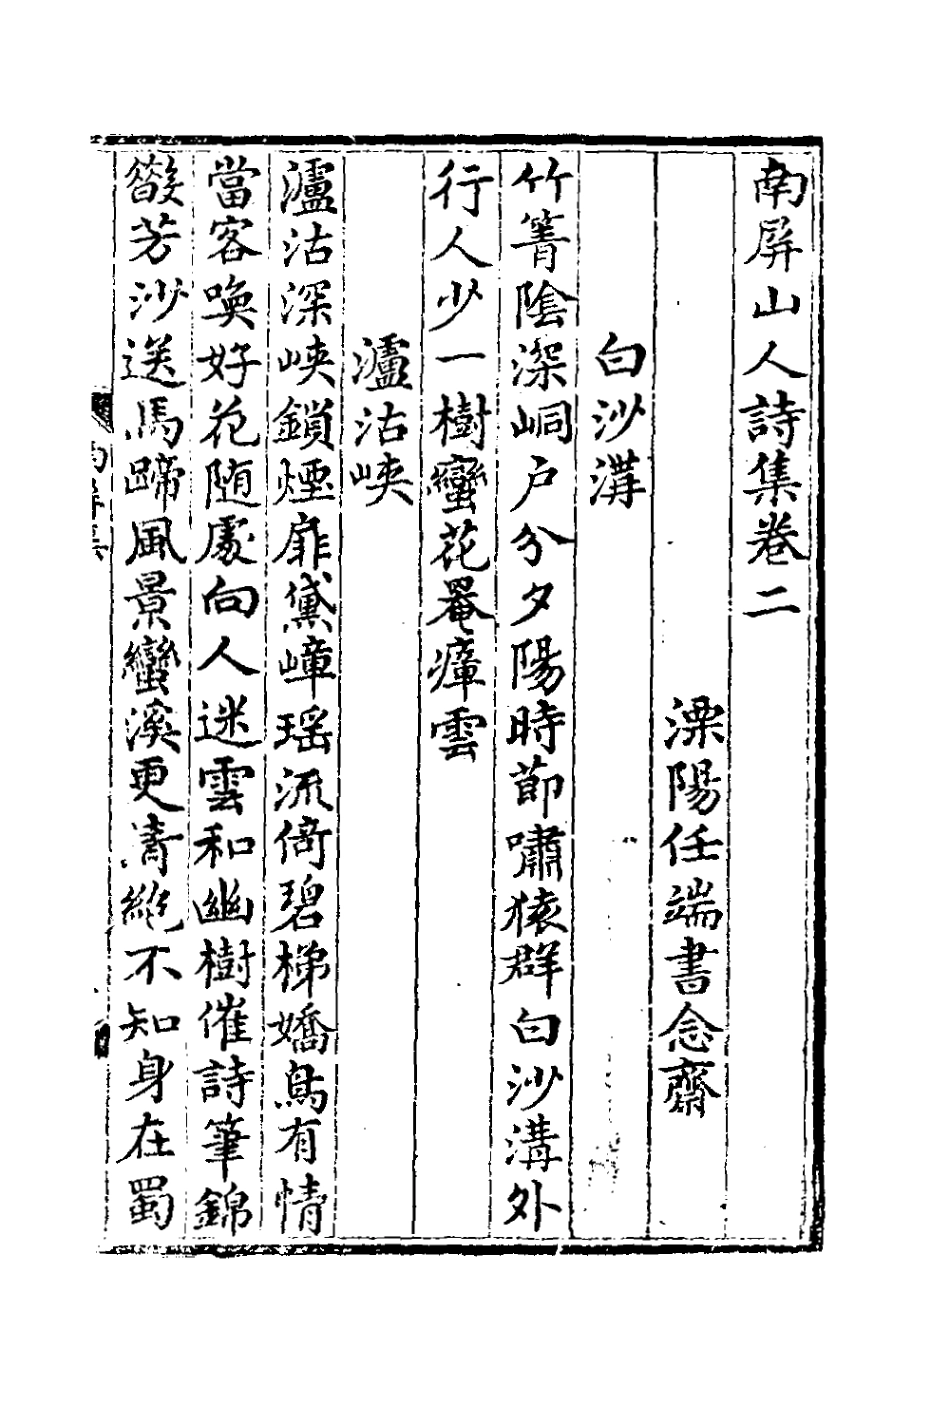 南屏山人詩集卷二
溧陽任端書念齋
白沙溝
竹箐陰深峒户分夕陽時節嘯猿群白沙溝外
行人少一樹蠻花罨瘴雲
瀘沽峽
瀘沽深峽鎖煙扉黛嶂瑶流倚碧梯嬌鳥有情
當客喚好花随處向人迷雲和幽樹催詩筆錦
籹芳沙送馬蹄風景蠻溪更清絶不知身在蜀